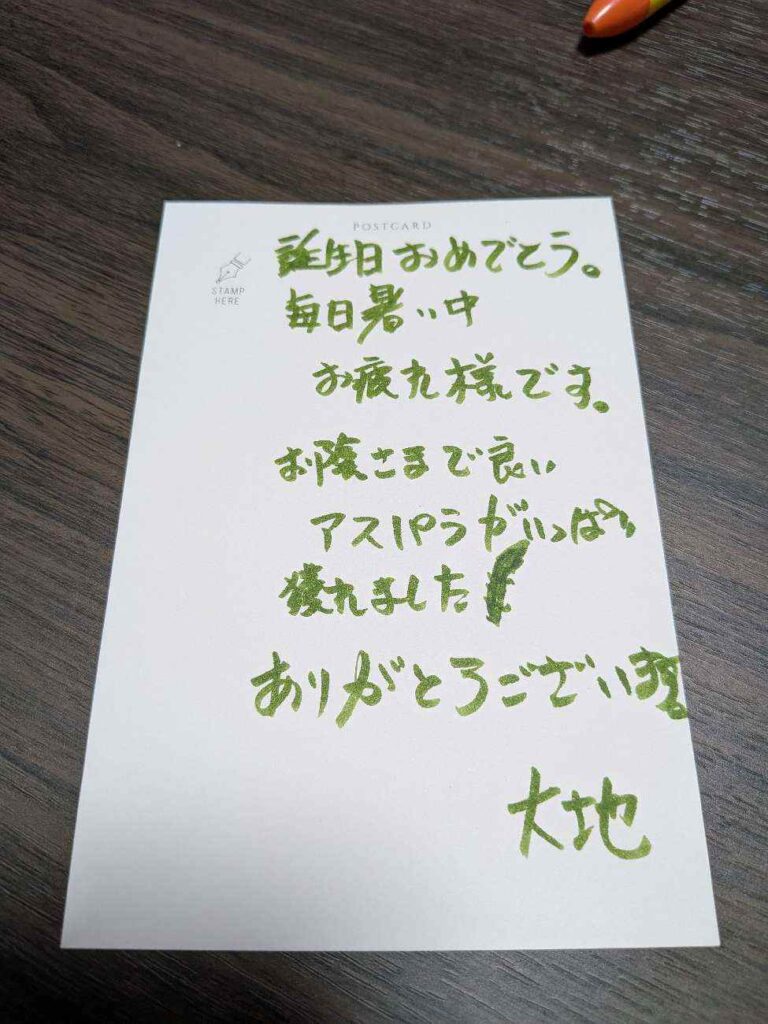 POSTCARD
STAMP
HERE
誕生日おめでとう。
毎日暑い中
お疲れ様です。
お陰さまで良い
アスパラがいっぱい
獲れました
ありがとうございます。
大地